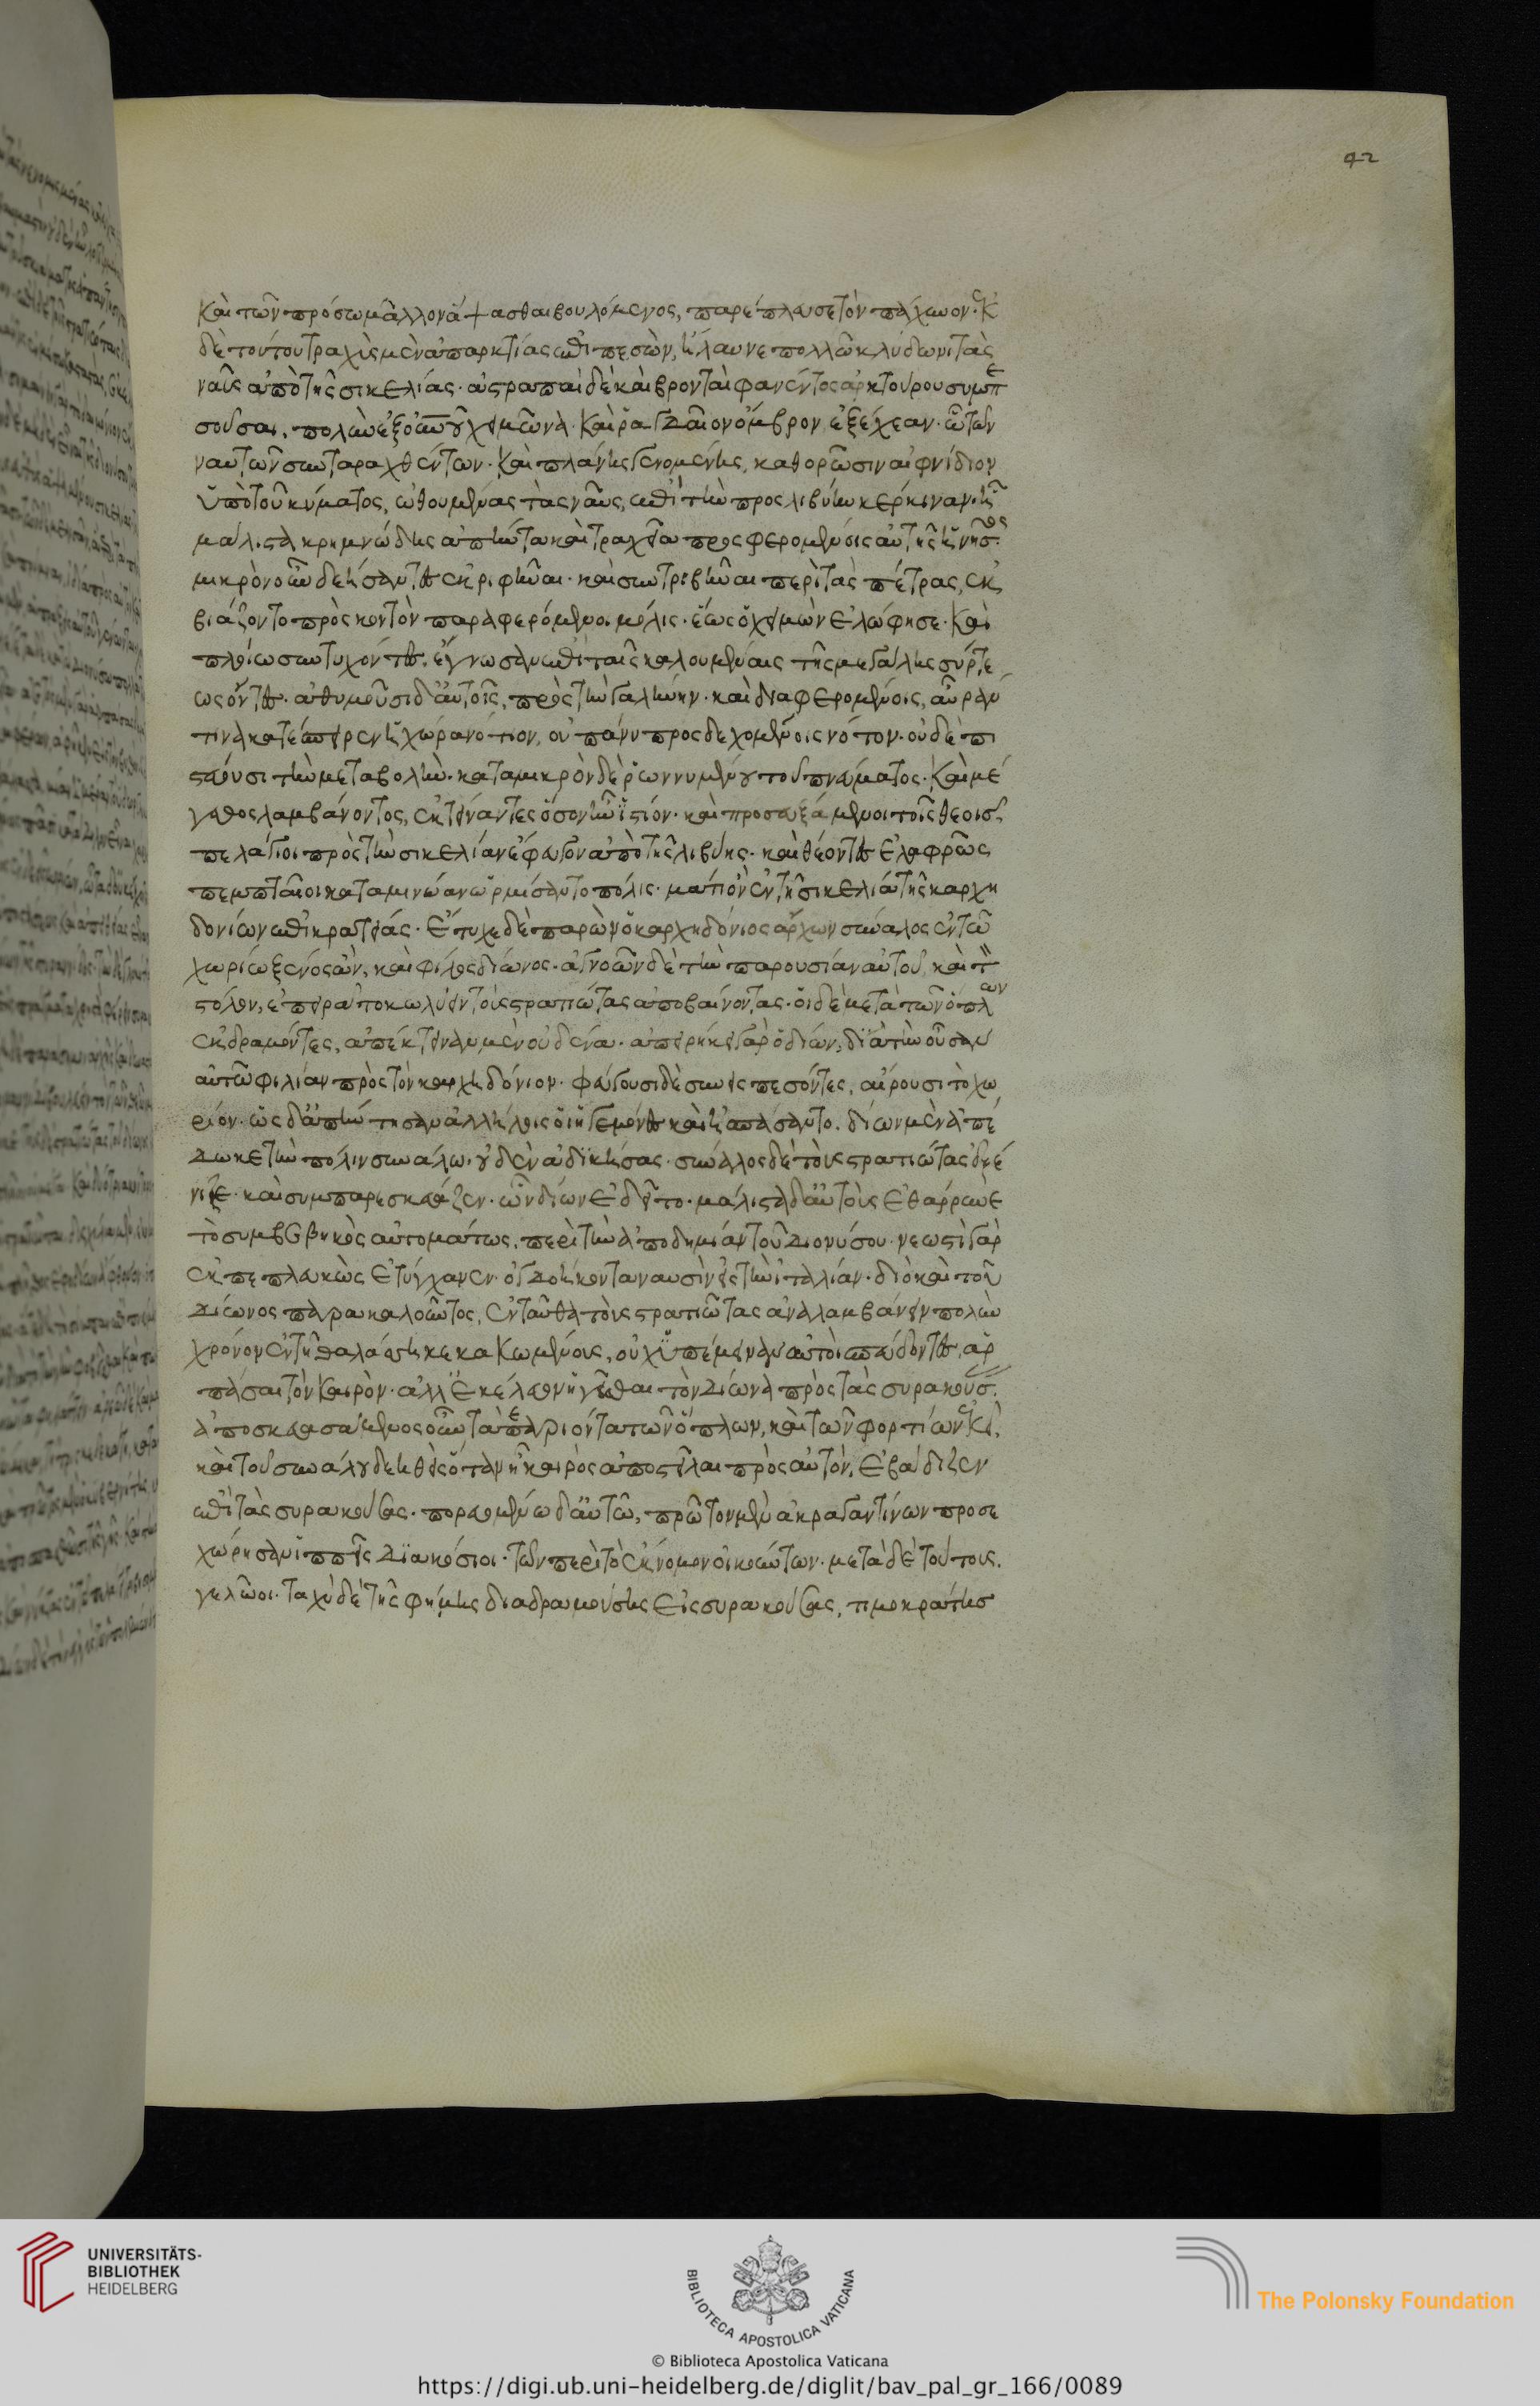 42
καὶ τῶν πρόσω μᾶλλον ἅψασθαι βουλόμενος, παρέπλευσε τὸν πάχυνον· ἐκ
δὲ τούτου τραχὺς μὲν ἀπαρκτίας ἐπιπεσὼν, ἤλαυνε πολλῶ κλύδωνι τὰς
ναῦς ἀπὸ τῆς σικελίας· ἀστραπαὶ δὲ καὶ βρονταὶ φανέντος ἀρκτούρου συμπε
σοῦσαι, πολὺν ἐξ οὐρανοῦ χειμῶνα καὶ ῥαγδαῖον ὄμβρον ἐξέχεαν· ὧ τῶν
ναυτῶν συνταραχθέντων· καὶ πλάνης γενομένης, καθορῶσιν αἰφνίδιον
ὑπὸ τοῦ κύματος, ὠθουμένας τὰς ναῦς, ἐπὶ τὴν πρὸς λιβύην κέρκιναν· ἧ
μάλιστα κρημνώδης ἀπήντα καὶ τραχεῖα προσφερομένοις αὐτοῖς ἡ νῆσος·
μικρὸν οὖν δεήσαντες ἐκριφῆναι· καὶ συντριβῆναι περὶ τὰς πέτρας, ἐ
βιάζοντο πρὸς κοντὸν παραφερόμενοι μόλις· ἕως ὁ χειμὼν ἐλώφησε· καὶ
πλοίω συντυχόντες, ἔγνωσαν ἐπὶ ταῖς καλουμέναις τῆς μεγάλης σύρτε
ως ὄντες· ἀθυμοῦσι δ' αὐτοῖς, πρὸς τὴν γαλήνην· καὶ διαφερομένοις, αὔραν
τινὰ κατέσπειρεν ἡ χώρα νότιον, οὐ πάνυ προσδεχομένοις νότον· οὐδὲ πι
στεύουσι τὴν μεταβολήν· κατὰ μικρὸν δὲ ῥωννυμένου τοῦ πνεύματος· καὶ μέ
γεθος λαμβάνοντος, ἐκτείναντες ὅσον ἦν ἱστίον· καὶ προσευξάμενοι τοῖς θεοῖς,
πελάγιοι πρὸς τὴν σικελίαν ἔφευγον ἀπὸ τῆς λιβύης· καὶ θέοντες ἐλαφρῶς
πεμπταῖοι κατὰ μινώαν ὡρμίσαντο πόλισμάτιον ἐν τῆ σικελία τῆς καρχη
δονίων ἐπικρατείας· ἔτυχε δὲ παρὼν ὁ καρχηδόνιος ἄρχων σύναλος ἐν τῶ
χωρίω ξένος ὢν, καὶ φίλος δίωνος· ἀγνοῶν δὲ τὴν παρουσίαν αὐτοῦ, καὶ τὸν
στόλον, ἐπειρᾶτο κωλύειν τοὺς στρατιώτας ἀποβαίνοντας· οἱ δὲ μετὰ τῶν ὅπλων
ἐκδραμόντες, ἀπέκτειναν μὲν οὐδένα· ἀπειρήκει γὰρ ὁ δίων, διὰ τὴν οὖσαν
αὐτῶ φιλίαν πρὸς τὸν καρχηδόνιον· φεύγουσι δὲ συνεισπεσόντες, αἱροῦσι τὸ χω
ρίον· ὡς δ' ἀπήντησαν ἀλλήλοις οἱ ἡγεμόνες καὶ ἠσπάσαντο. δίων μὲν ἀπέ
δωκε τὴν πόλιν συνάλω· οὐδὲν ἀδικήσας· σύναλος δὲ τοὺς στρατιώτας ἐξέ
νιζε· καὶ συμπαρεσκεύαζεν· ὧν δίων ἐδεῖτο· μάλιστα δ' αὐτοὺς ἐθάρρυνε
τὸ συμβεβηκὸς αὐτομάτως, περὶ τὴν ἀποδημίαν τοῦ διονύσου· νεωστὶ γὰρ
ἐκπεπλευκὼς ἐτύγχανεν· ὀγδοήκοντα ναυσὶν εἰς τὴν ἰταλίαν· διὸ καὶ τοῦ
δίωνος παρακαλοῦντος, ἐνταῦθα τοὺς στρατιώτας ἀναλαμβάνειν πολὺν
χρόνον ἐν τῆ θαλάσση κεκακωμένους, οὐχ ὑπέμειναν αὐτοὶ σπεύδοντες ἁρ
πάσαι τὸν καιρὸν· ἀλλ' ἐκέλευον ἡγεῖσθαι τὸν δίωνα πρὸς τὰς συρακούσ.
ἀποσκευασάμενος οὖν τὰ περιόντα τῶν ὅπλων, καὶ τῶν φορτίων ἐκεῖ,
καὶ τοῦ συνάλου δεηθεὶς ὅταν ἦ καιρὸς ἀποστεῖλαι πρὸς αὐτόν, ἐβάδιζεν
ἐπὶ τὰς συρακούσας· πορευομένω δ' αὐτῶ, πρῶτον μὲν ἀκραγαντίνων προσε
χώρησαν ἱππεῖς διακόσιοι· τῶν περὶ τὸ ἔκνομον οἰκούντων· μετὰ δὲ τούτους,
γελῶοι· ταχὺ δὲ τῆς φήμης διαδραμούσης εἰς συρακούσας, τιμοκράτης
UNIVERSITÄTS-
BIBLIOTHEK
HEIDELBERG
BIBLIOTECA APOSTOLICA VATICANA
The Polonsky Foundation
© Biblioteca Apostolica Vaticana
https://digi.ub.uni-heidelberg.de/diglit/bav_pal_gr_166/0089